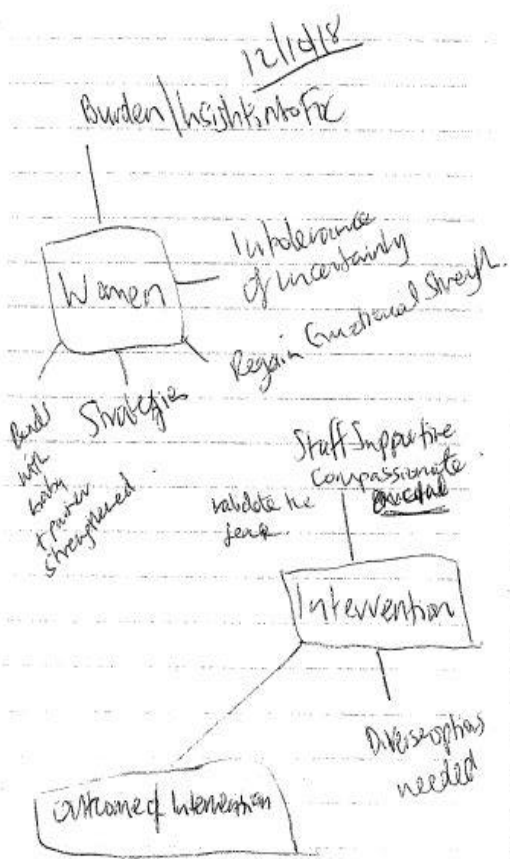 12/10/18
Burden/Insight into FOC
Women
Intolerance
of uncertainty
Regain Emotional Strength
Bond
with
baby
+ partner
strengthened
Strategies
Staff Supportive
Compassionate
crucial
validate the
fear
Intervention
Diverse options
needed
Outcome of Intervention